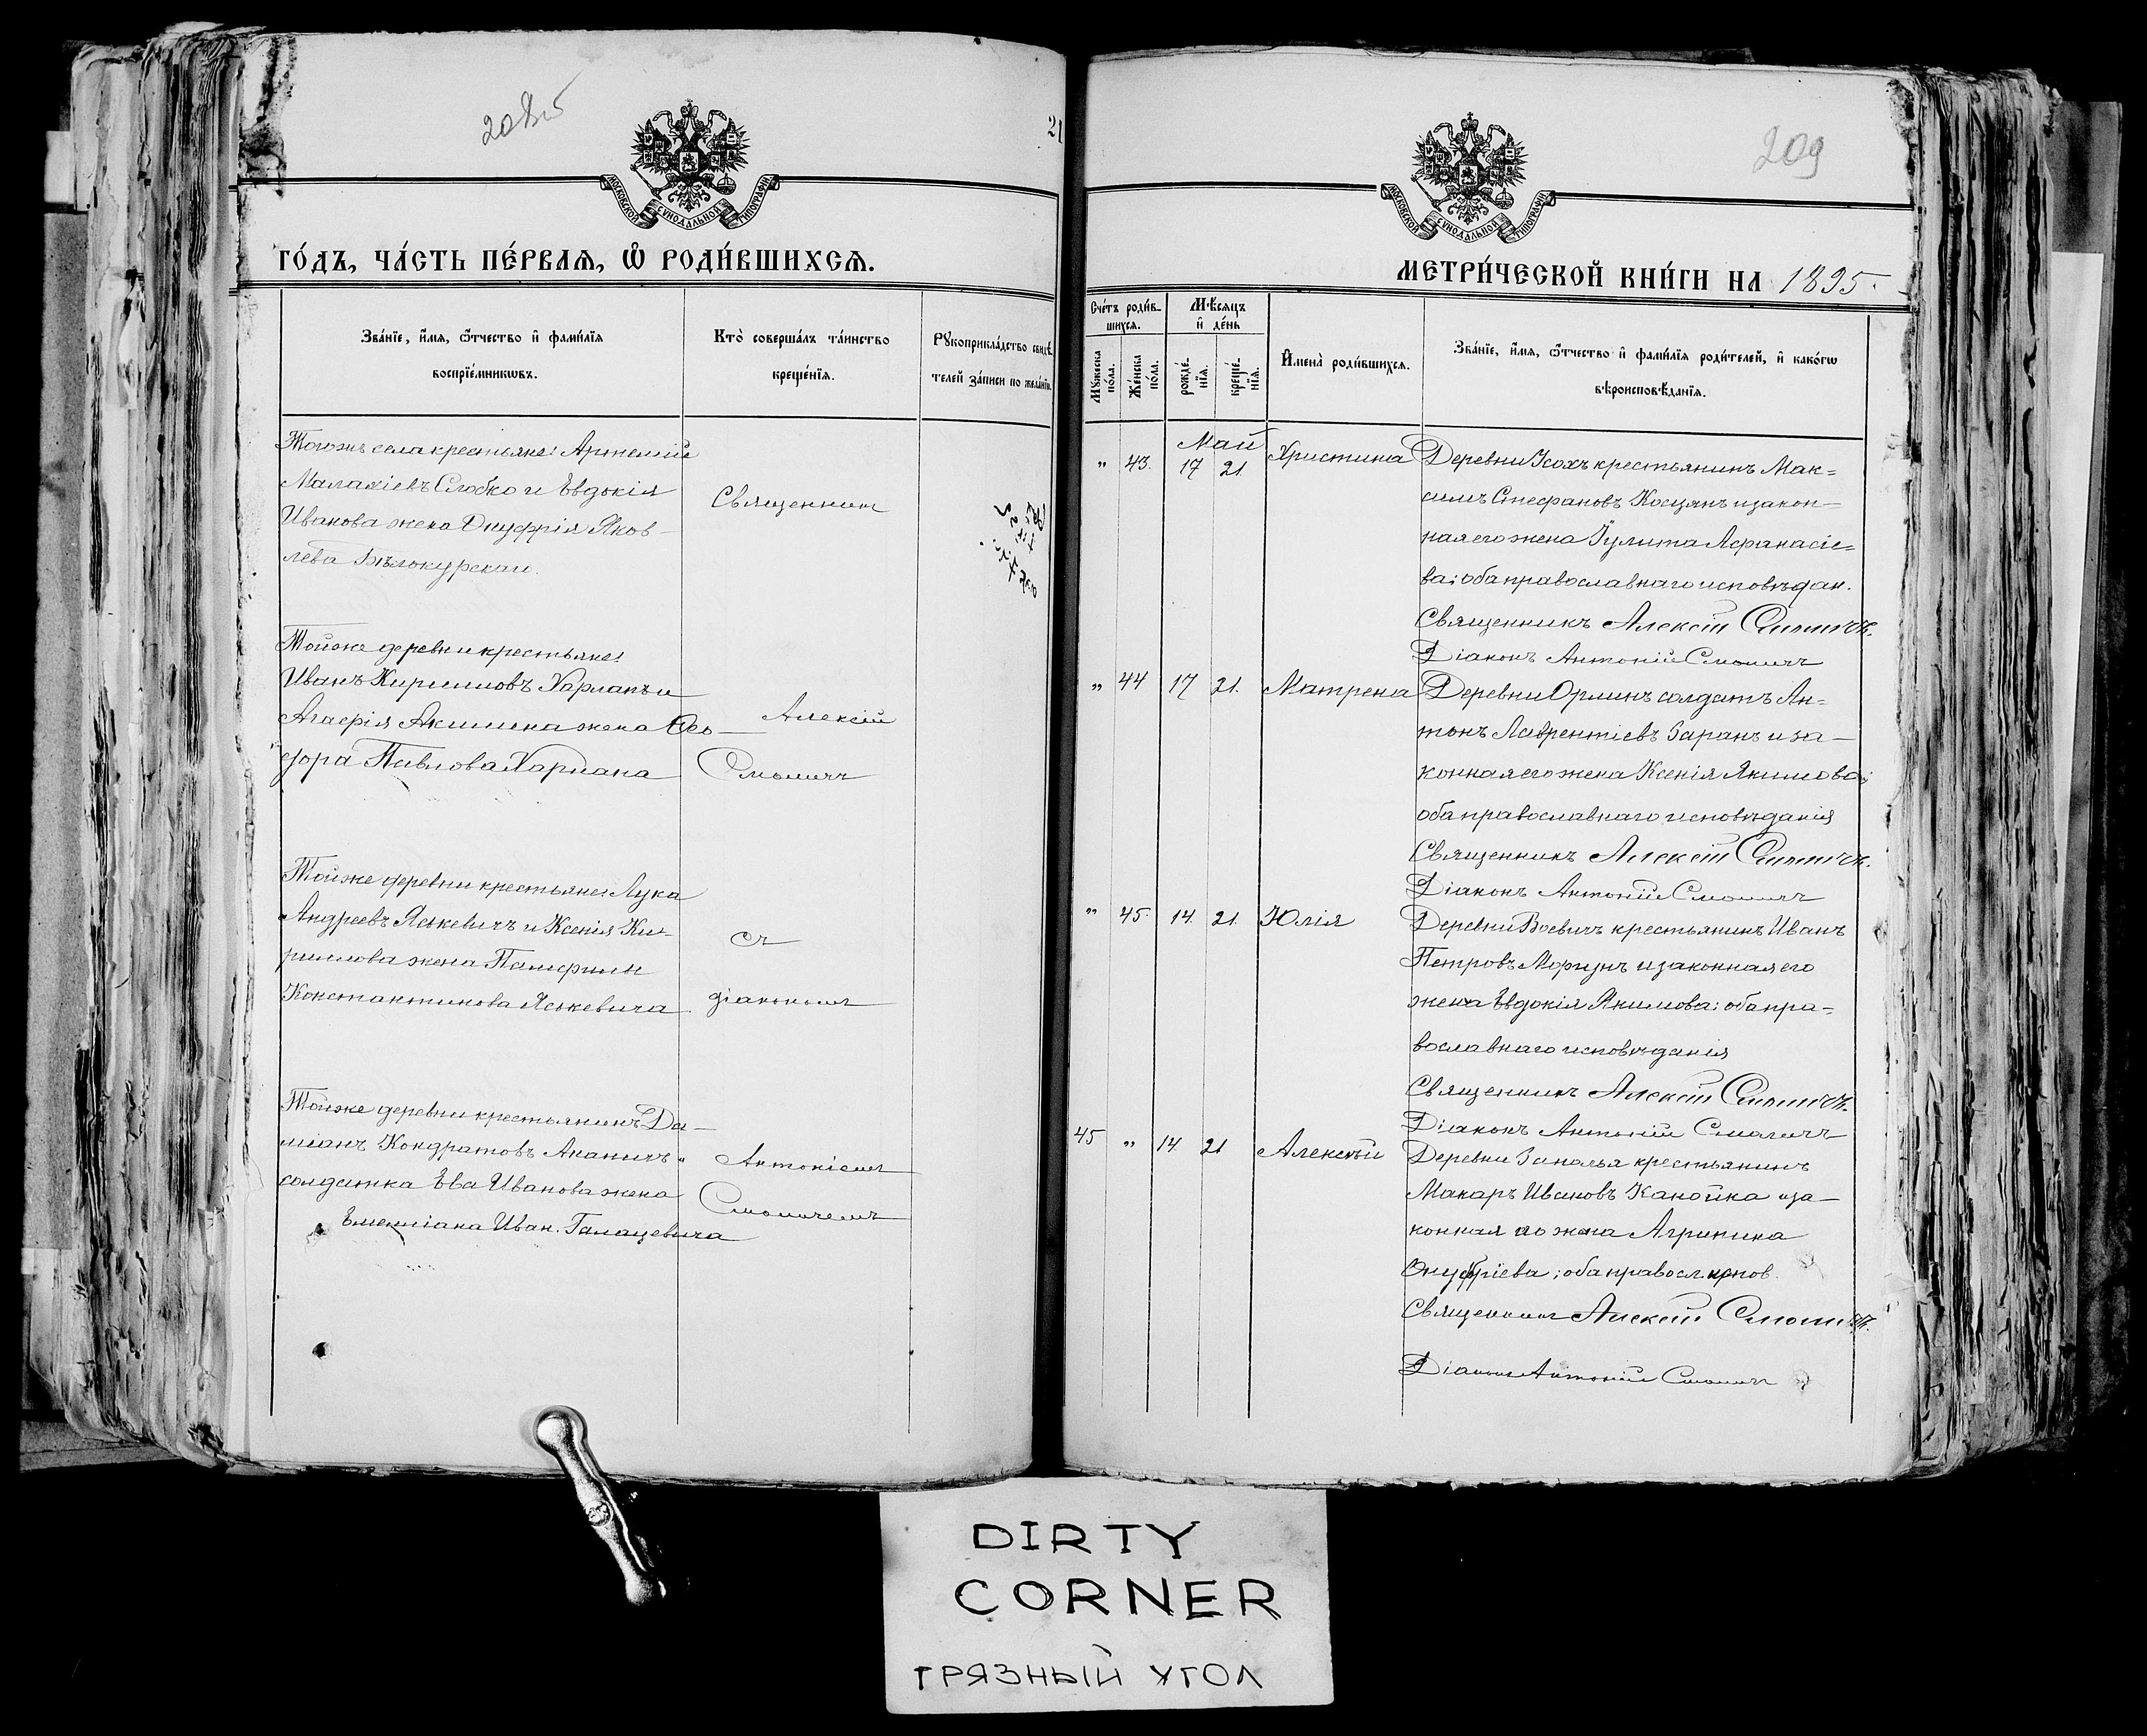 208об
21
МОСКОВСКОЙ СѴНОДАЛЬНОЙ ТИПОГРАФІИ
ГО́ДЪ, ЧА́СТЬ ПЕ́РВАЯ, Ѡ҆ РОДИ́ВШИХСЯ.
Зва́нїе, и҆́мѧ, ѻ҆́тчество и҆ фамѝлїѧ воспрїе́мникѡвъ.
Кто̀ соверша́лъ та́инство креще́нїѧ.
Рꙋкоприкла́дство свидѣ́телей за́писи по жела́нїю.
Тогожъ села крестьяне: Артемій
Малахіевъ Слобко и Евдокія
Иванова жена Онуфрія Яков-
лева Бѣлокурскаи.
Священникъ
Тойже деревни крестьяне:
Иванъ Кирилловъ Харланъ и
Агафія Акимина жена Ѳео-
фора Павлова Харлана
Алексій
Смоличъ
Тойже деревни крестьяне: Лука
Андреевъ Яськевичъ и Ксенія Ки-
риллова жена Памфила
Константинова Яськевича
съ
діакономъ
Тойже деревни крестьянинъ Да-
міанъ Кондратовъ Ананичъ и
солдатка Ева Иванова жена
Емеліана Иван. Галацевича
Антоніемъ
Смоличемъ
209
МОСКОВСКОЙ СѴНОДАЛЬНОЙ ТИПОГРАФІИ
МЕТРИ́ЧЕСКОЙ КНИ́ГИ НА 1895.
Сче́тъ роди́вшихсѧ.
Мꙋ́жеска по́ла.
Же́нска по́ла.
Мѣ́сѧцъ и҆ де́нь
рожде́нїѧ.
креще́нїѧ.
И҆мена̀ роди́вшихсѧ.
Зва́нїе, и҆́мѧ, ѻ҆́тчество и҆ фамѝлїѧ роди́телей, и҆ како́гѡ
вѣроисповѣ́данїѧ.
Май
" 43. 17 21. Христина Деревни Усохъ крестьянинъ Мак-
симъ Стефановъ Косцянъ и закон-
ная его жена Іулита Афанасіе-
ва; оба православнаго исповѣдан.
Священникъ Алексій Смоличъ.
Діаконъ Антоній Смоличъ
" 44 17 21. Матрена Деревни Орлинъ солдатъ Ан-
тонъ Лаврентіевъ Баранъ и за-
конная его жена Ксенія Якимова;
оба православнаго исповѣданія
Священникъ Алексій Смоличъ.
Діаконъ Антоній Смоличъ
" 45. 14. 21. Юлія Деревни Воевичъ крестьянинъ Иванъ
Петровъ Моргунъ и законная его
жена Евдокія Якимова; оба пра-
вославнаго исповѣданія
Священникъ Алексій Смоличъ.
Діаконъ Антоній Смоличъ
45 " 14. 21 Алексѣй Деревни Заполья крестьянинъ
Макаръ Ивановъ Канойка и за-
конная его жена Агрипина
Онуфріева; оба правосл. испов.
Священникъ Алексій Смоличъ.
Діаконъ Антоній Смоличъ
DIRTY
CORNER
ГРЯЗНЫЙ УГОЛ